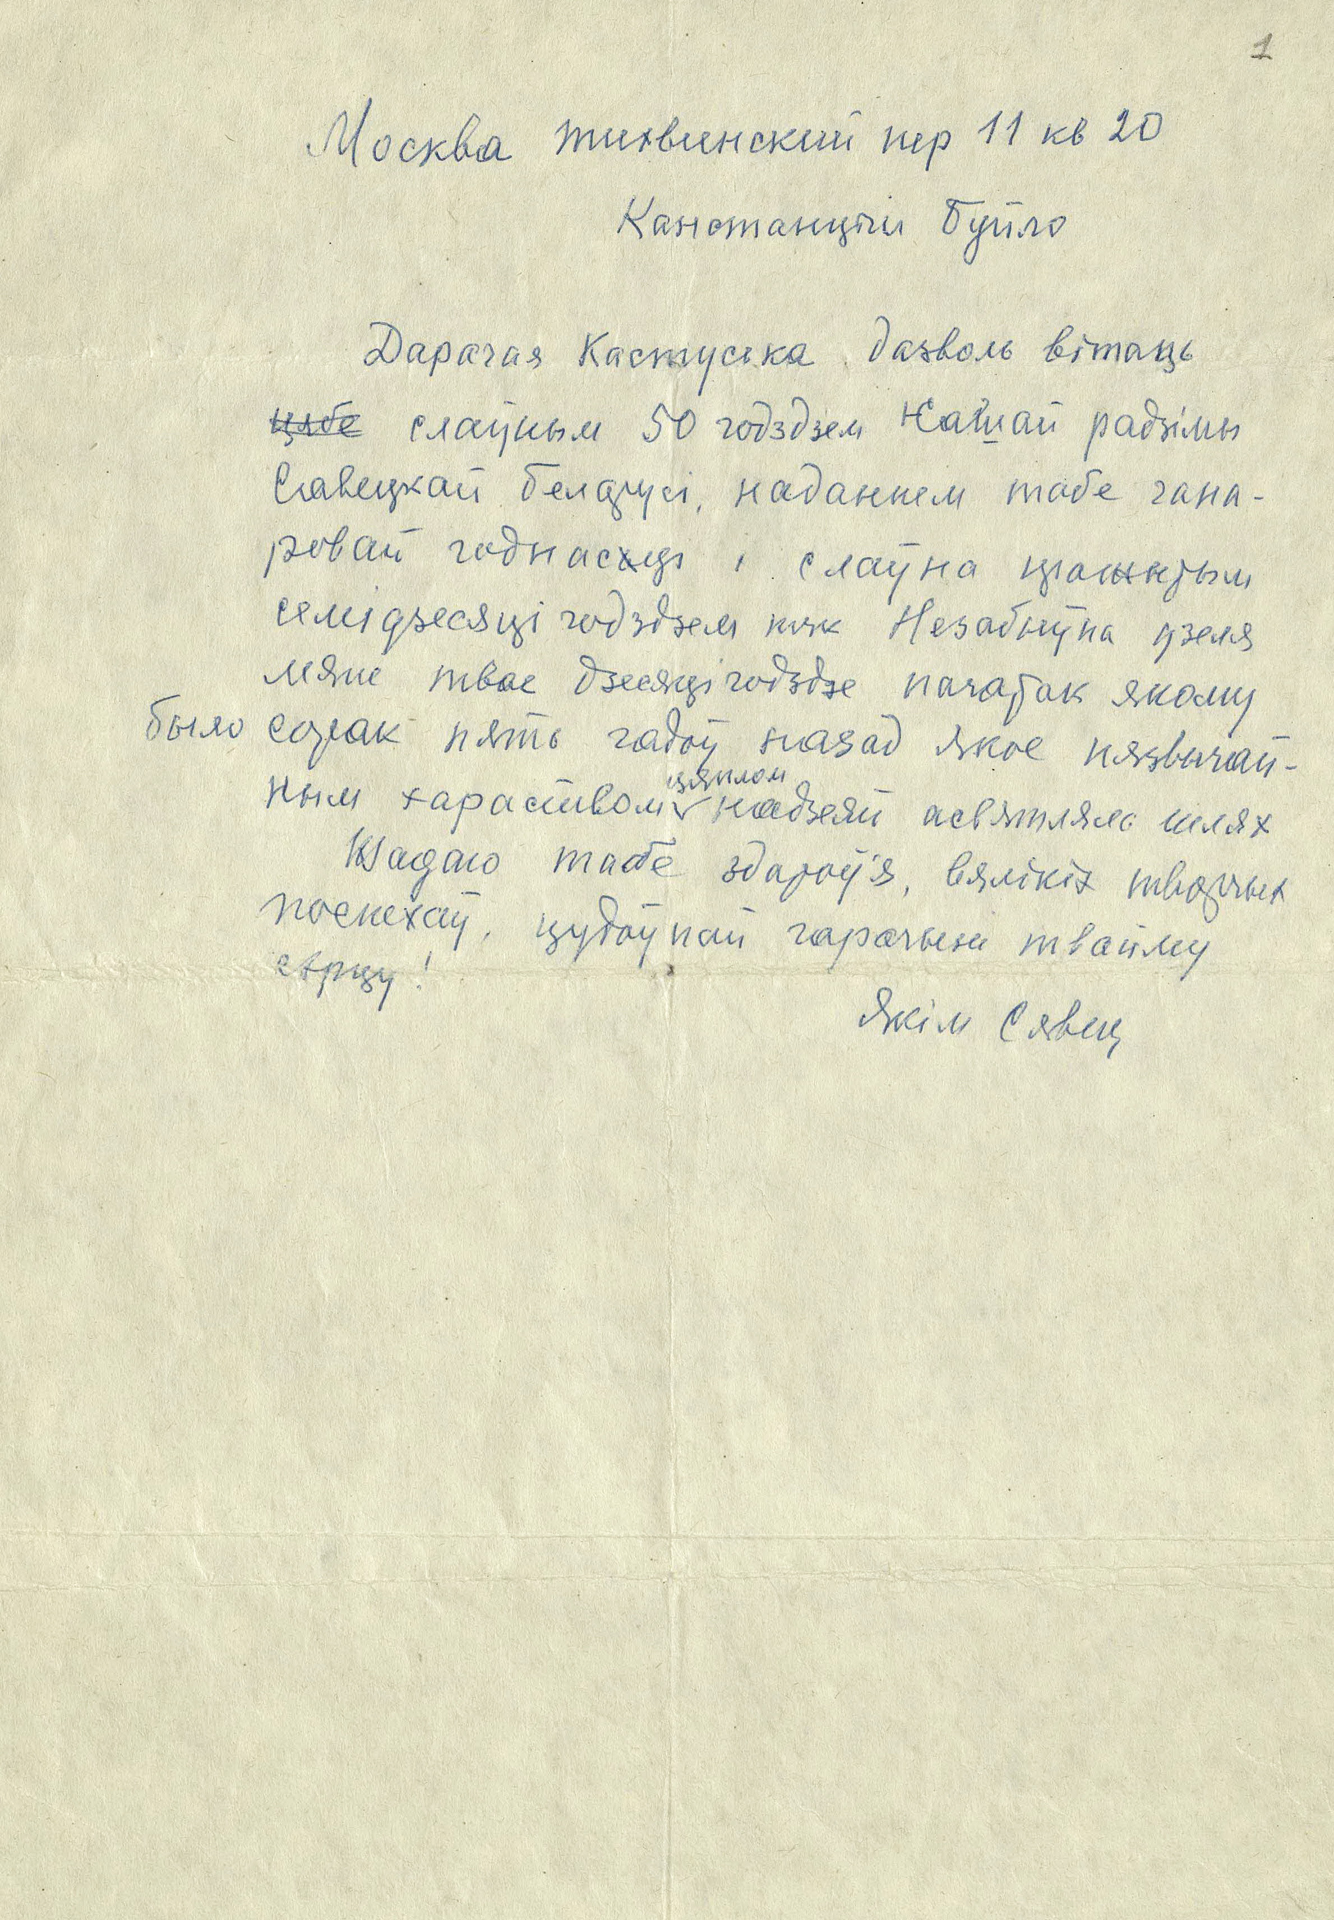 1
Москва тихвинский пер 11 кв 20
Канстанцыи Буйло
Дарагая Кастуська дазволь вітаць
цябе слаўным 50 годздзем Нашай радзімы
Савецкай Беларусі, наданнем табе гана-
ровай годнасці і слаўна
семідзесяці годздзем так Незабыўна дзеля
мяне твае дзесяцігодздзе пачатак якому
было сорак пять гадоў назад якое нязвычай-
ным хараством цяплом надзеяй асвятляла шлях
Жадаю табе здароў'я, вялікіх творчых
поспехаў, цудоўнай гарачыни твайму
сэрцу!
Якім Сявец